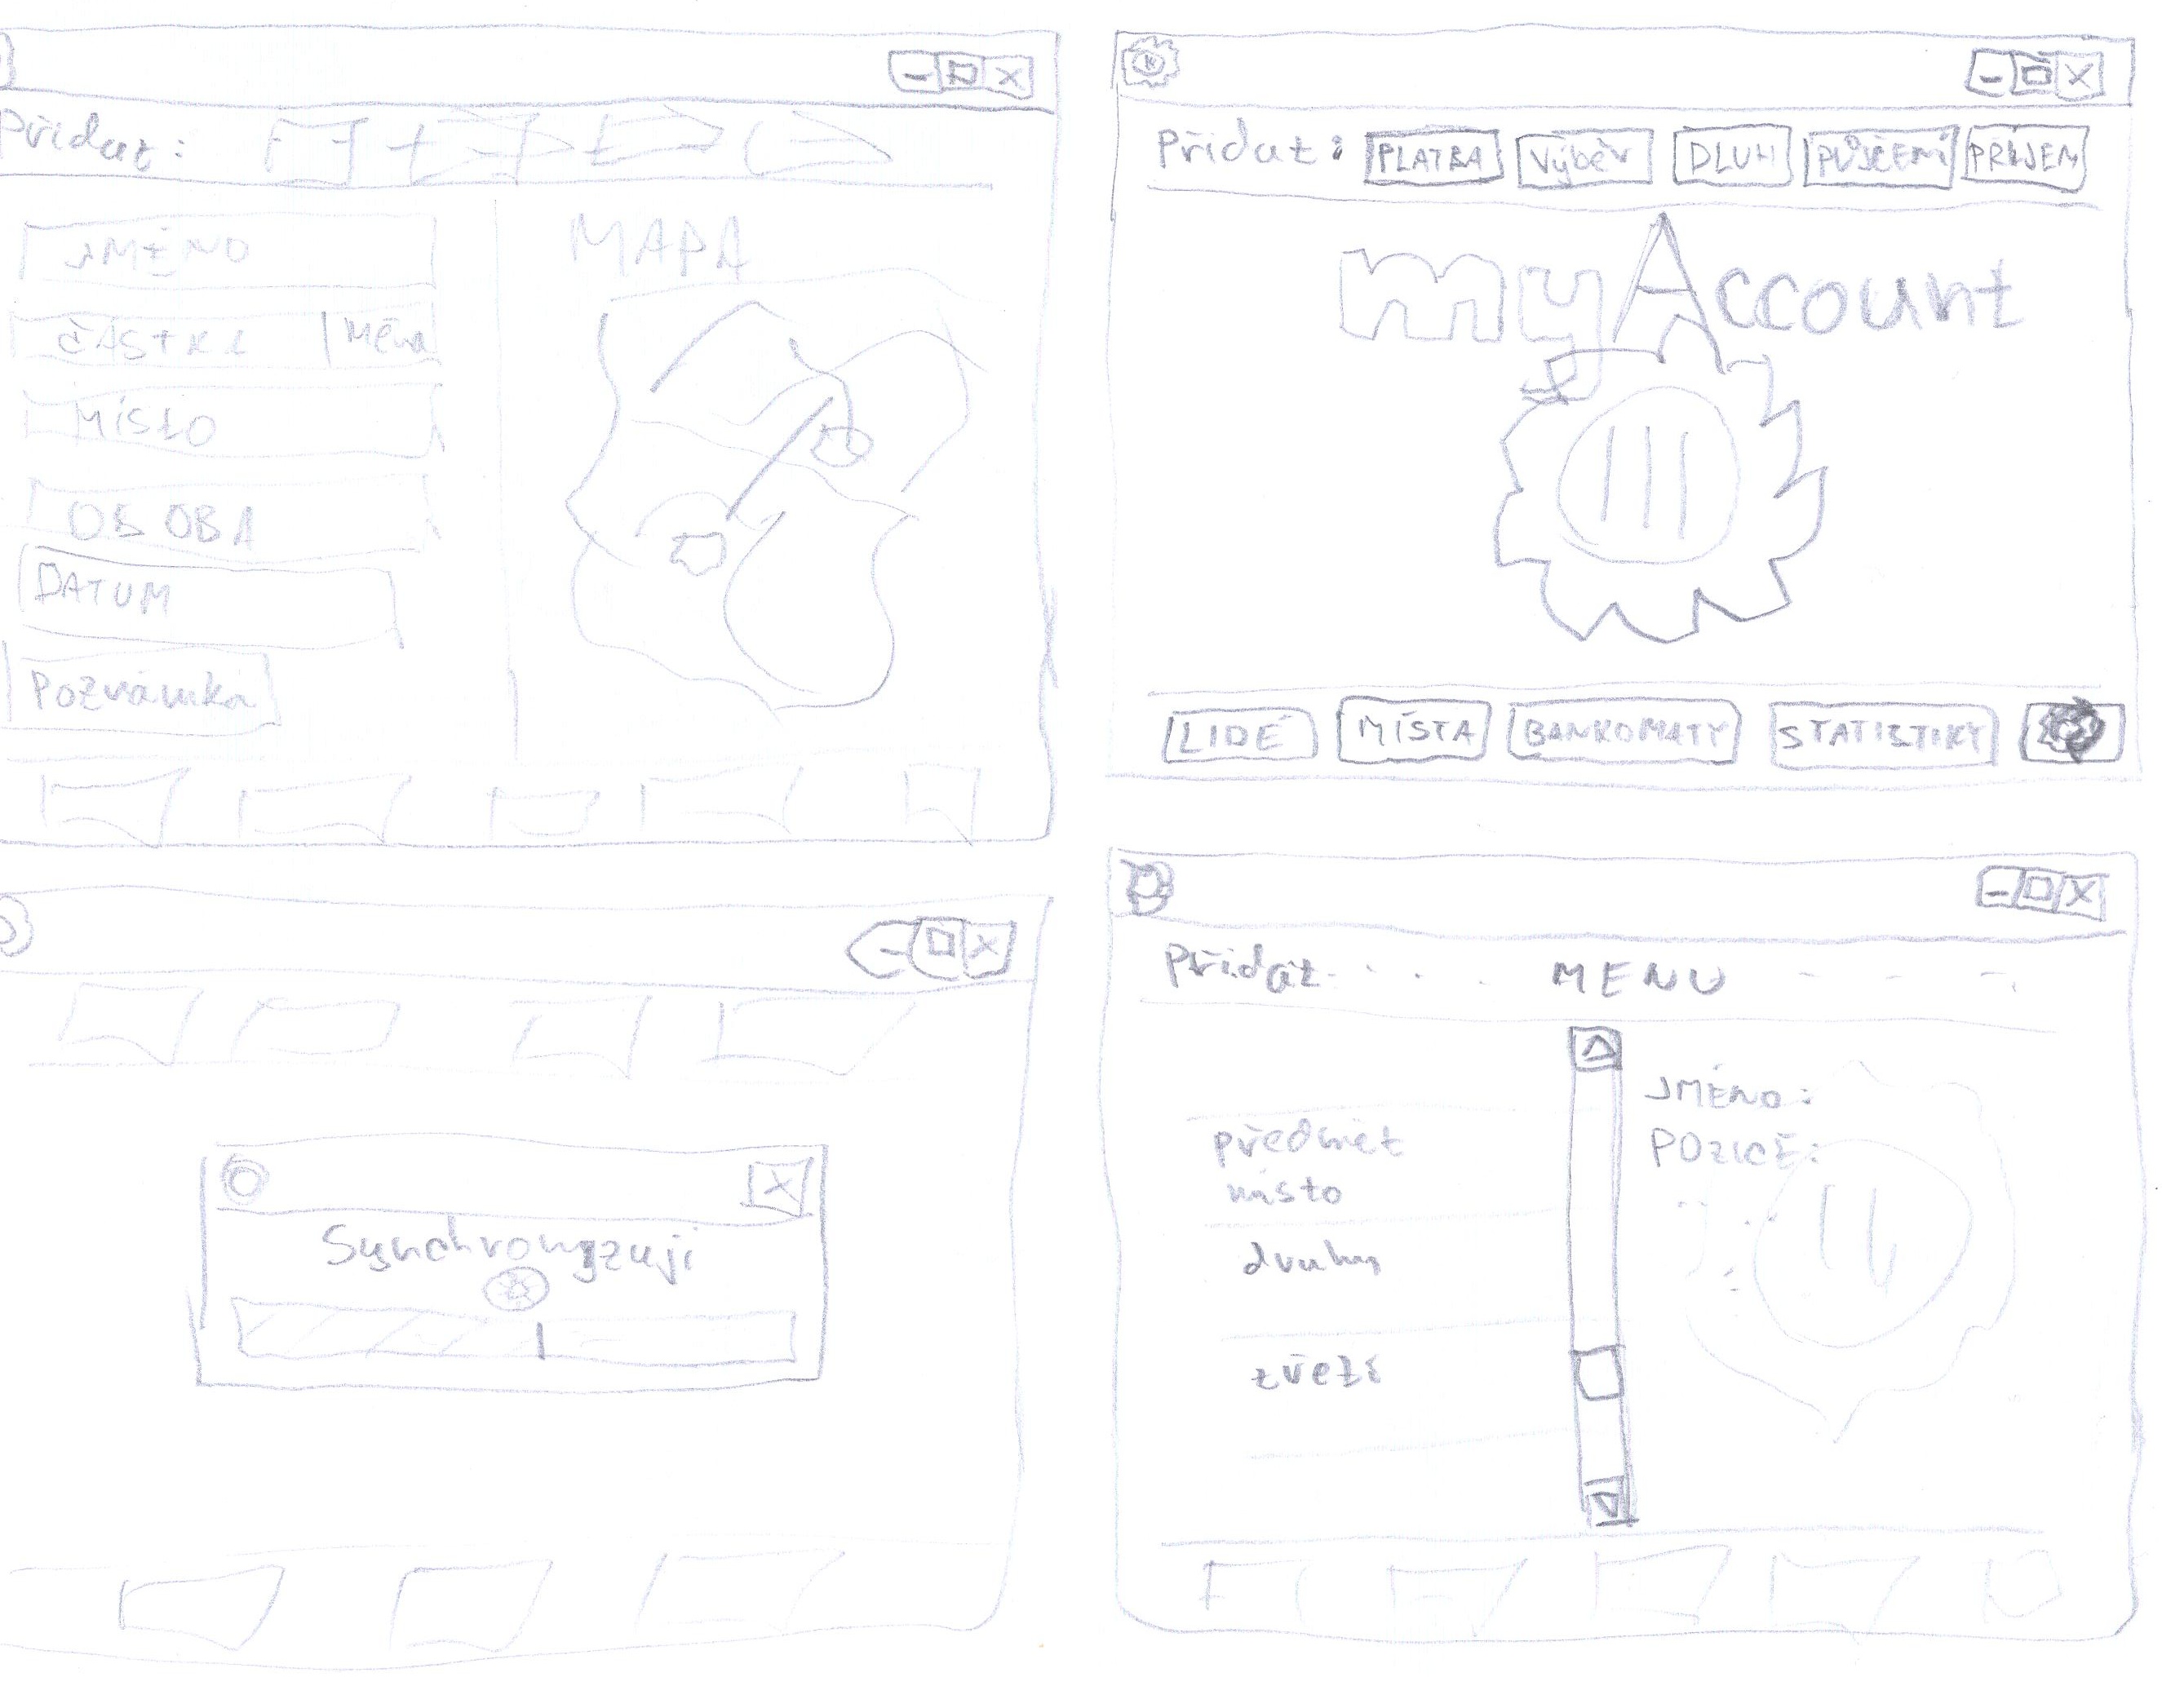 Přidat:
JMÉNO
ČÁSTKA | Měna
MÍSTO
OSOBA
DATUM
Poznámka
MAPA
Přidat: PLATBA Výběr DLUH PŮJČENÍ PŘÍJEM
myAccount
LIDÉ MÍSTA BANKOMATY STATISTIKY
Synchronyzuji
Přidat MENU
předmět
místo
druhy
třetí
JMÉNO:
POZICE: